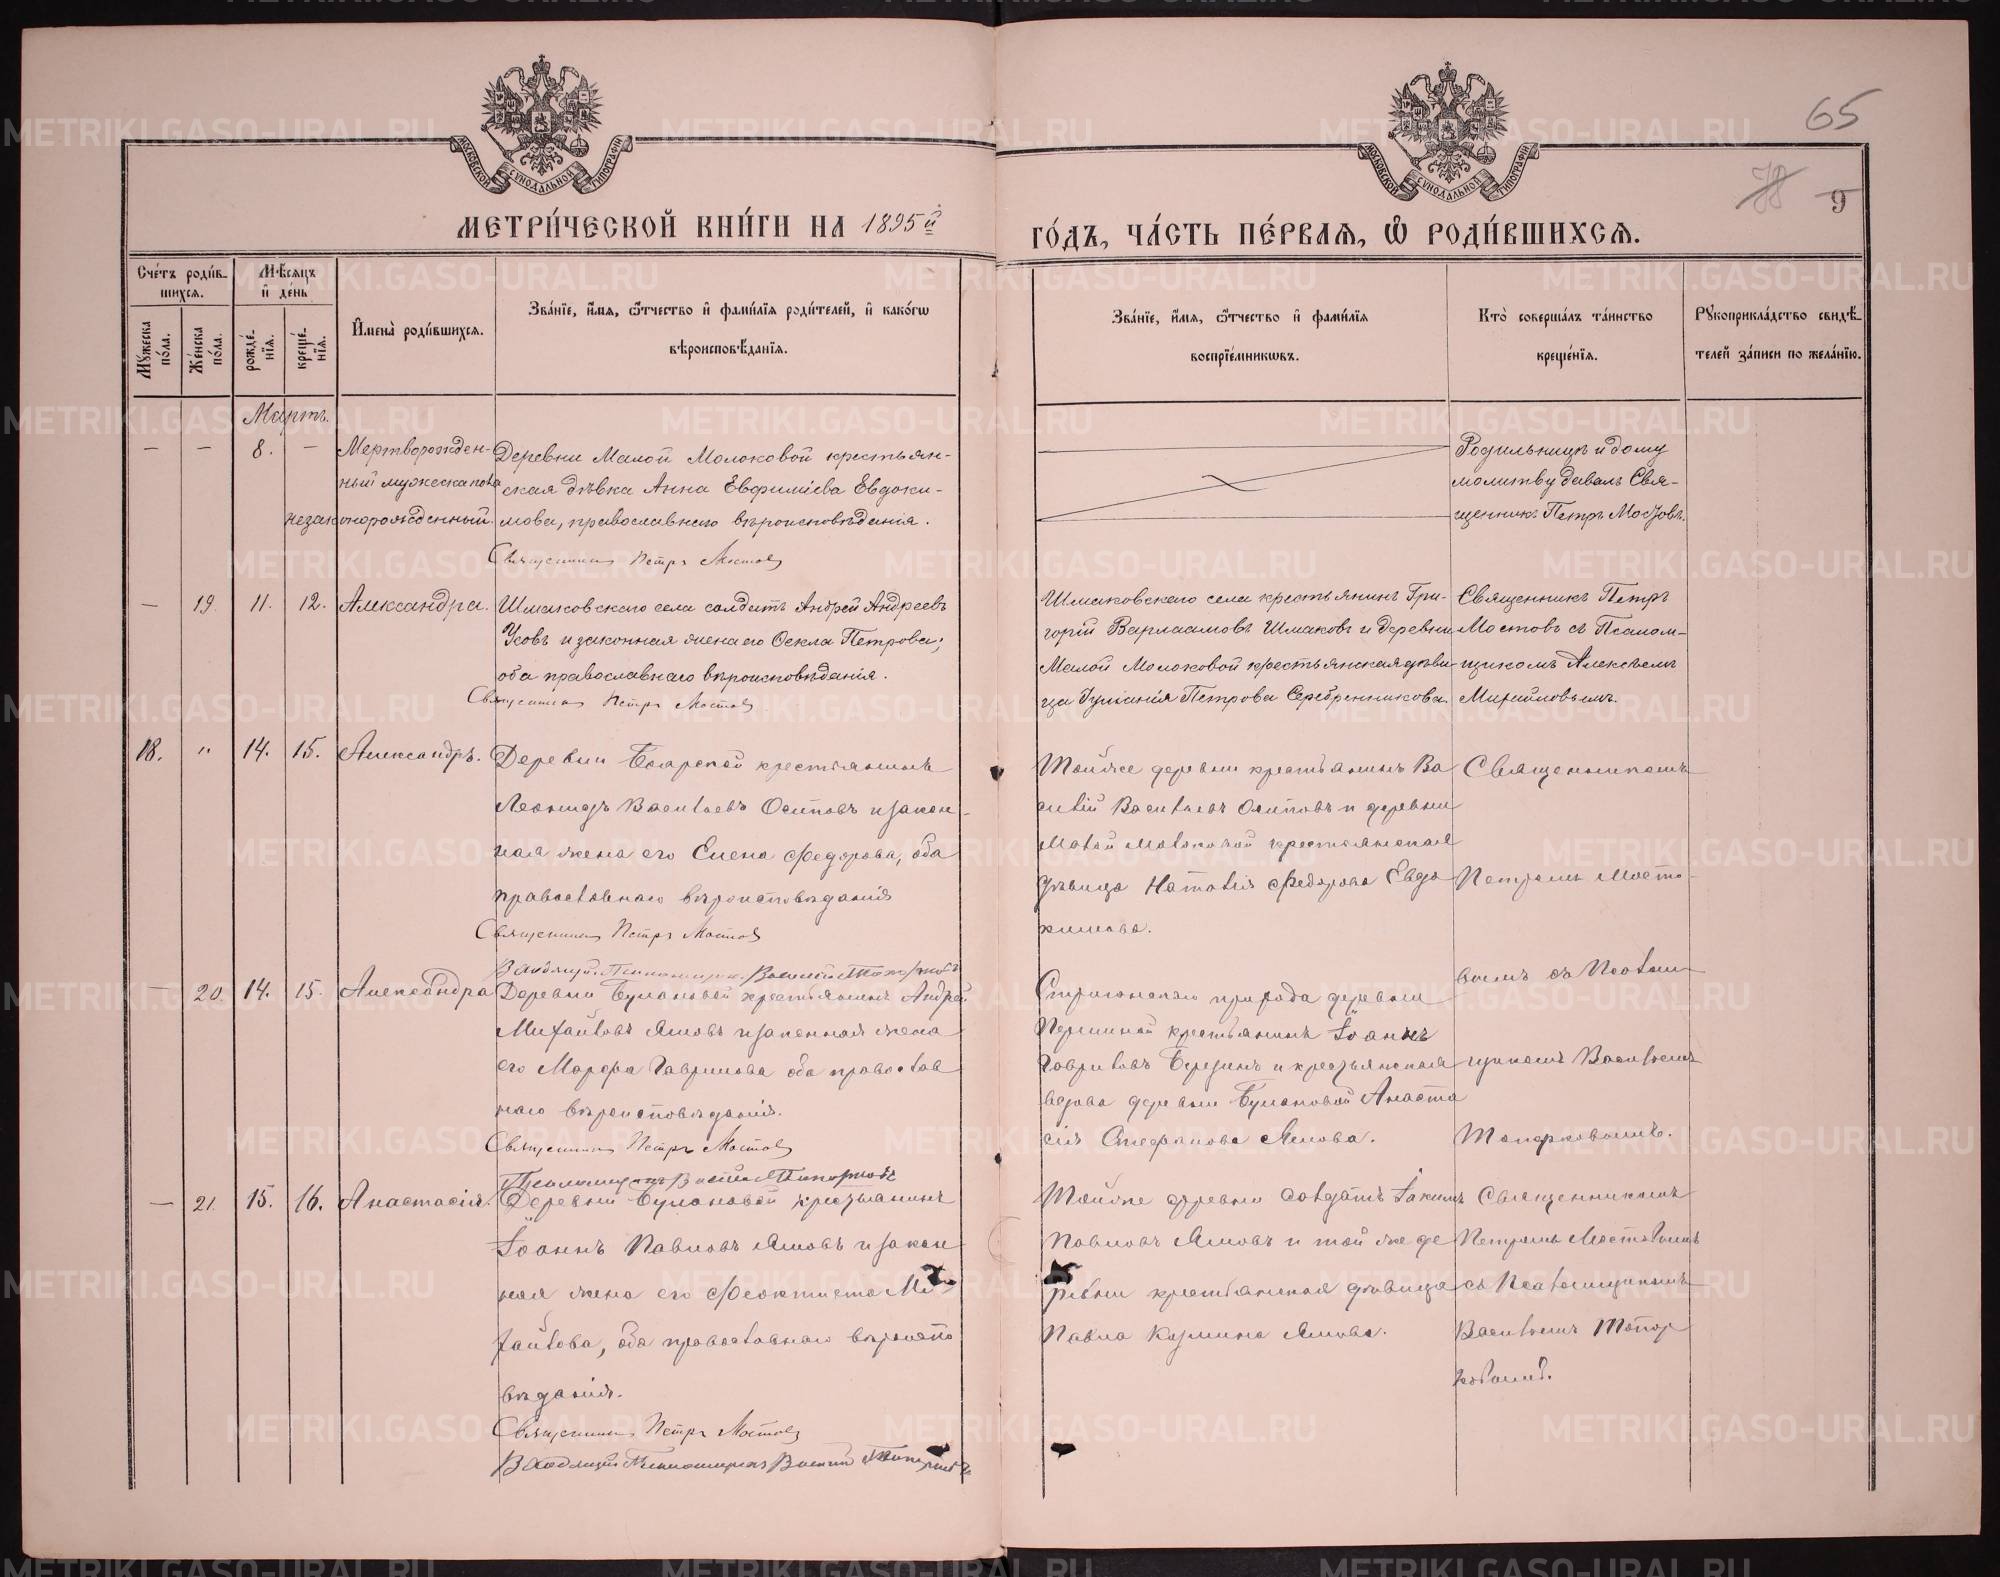 65
78 9
МОСКОВСКОЙ СУНОДАЛЬНОЙ ТИПОГРАФІИ
МОСКОВСКОЙ СУНОДАЛЬНОЙ ТИПОГРАФІИ
МЕТРИ́ЧЕСКОЙ КНИ́ГИ НА 1895й
ГО́ДЪ, ЧА́СТЬ ПЕ́РВАЯ, Ѡ РОДИ́ВШИХСЯ.
Сче́тъ роди́в-
шихся.
Мꙋ́жеска по́ла.
Же́нска по́ла.
Мѣ́сяцъ
и҆ де́нь
рожде́-
нїя.
креще́-
нїя.
И҆мена̀ роди́вшихся.
Зва́нїе, и҆́мя, ѻ҆́тчество и҆ фами́лїя роди́телей, и҆ какогѡ
вѣроисповѣ́данїя.
Зва́нїе, и҆́мя, ѻ҆́тчество и҆ фами́лїя
воспрїе́мникѡвъ.
Кто̀ соверша́лъ та́инство
креще́нїя.
Рꙋкоприкла́дство свидѣ́-
телей за́писи по жела́нїю.
Мартъ.
— — 8. — Мертворожден-
ный мужеска пола
незаконорожденный.
Деревни Малой Молоковой крестьян-
ская дѣвка Анна Евфиміева Евдоки-
мова, православнаго вѣроисповѣданія.
Священникъ Петръ Мостовъ
Родильницѣ и дому
молитву давалъ Свя-
щенникъ Петръ Мостовъ.
— 19. 11. 12. Александра.
Шмаковскаго села солдатъ Андрей Андреевъ
Усовъ и законная жена его Ѳекла Петрова;
оба православнаго вѣроисповѣданія.
Священникъ Петръ Мостовъ
Шмаковскаго села крестьянинъ Гри-
горій Варлаамовъ Шмаковъ и деревни
Малой Молоковой крестьянская дѣви-
ца Іуліанія Петрова Серебренникова.
Священникъ Петръ
Мостовъ съ Псалом-
щикомъ Алексѣемъ
18. " 14. 15. Александръ.
Деревни Боярской крестьянинъ
Леонидъ Васильевъ Осиповъ и закон-
ная жена его Елена Федорова, оба
православнаго вѣроисповѣданія
Священникъ Петръ Мостовъ
Псаломщикъ Василій Топорковъ
Тойже деревни крестьянинъ Ва
силій Васильевъ Осиповъ и деревни
Малой Молоковой крестьянская
дѣвица Наталія Федорова Евдо
кимова.
Священникомъ
Петромъ Мосто-
вымъ съ Псалом-
щикомъ Васильемъ
Топорковымъ.
— 20. 14. 15. Александра
Деревни Булановой крестьянинъ Андрей
Михайловъ Ямовъ и законная жена
его Марфа Гаврилова оба православ
наго вѣроисповѣданія.
Священникъ Петръ Мостовъ
Псаломщикъ Василій Топорковъ
прихода деревни
Першиной крестьянинъ Іоаннъ
Гавриловъ Березинъ и крестьянская
вдова деревни Булановой Анаста
сія Стефанова Ямова.
— 21. 15. 16. Анастасія.
Деревни Булановой крестьянинъ
Іоаннъ Павловъ Ямовъ и закон
ная жена его Феоктиста Ми-
хайлова, оба православнаго вѣроиспо
вѣданія.
Священникъ Петръ Мостовъ
Псаломщикъ Василій Топорковъ
Тойже деревни солдатъ Іакимъ
Павловъ Ямовъ и той же де
ревни крестьянская дѣвица
Павла Козмина Ямова.
Священникомъ
Петромъ Мостовымъ
съ Псаломщикомъ
Васильемъ Топор
ковымъ.
METRIKI.GASO-URAL.RU